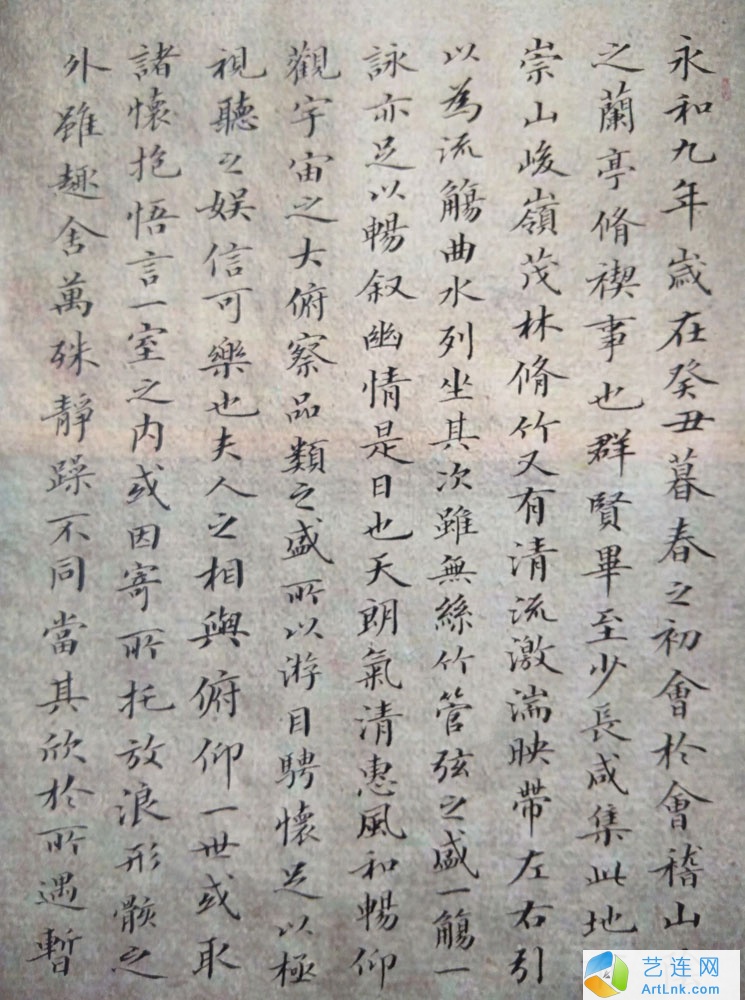 永和九年歲在癸丑暮春之初會於會稽山
之蘭亭脩禊事也群賢畢至少長咸集此地
崇山峻嶺茂林脩竹又有清流激湍映帶左右引
以為流觴曲水列坐其次雖無絲竹管弦之盛一觴一
詠亦足以暢叙幽情是日也天朗氣清惠風和暢仰
觀宇宙之大俯察品類之盛所以游目騁懷足以極
視聽之娛信可樂也夫人之相與俯仰一世或取
諸懷抱悟言一室之内或因寄所托放浪形骸之
外雖趣舍萬殊靜躁不同當其欣於所遇暫
艺连网
ArtLnk.com